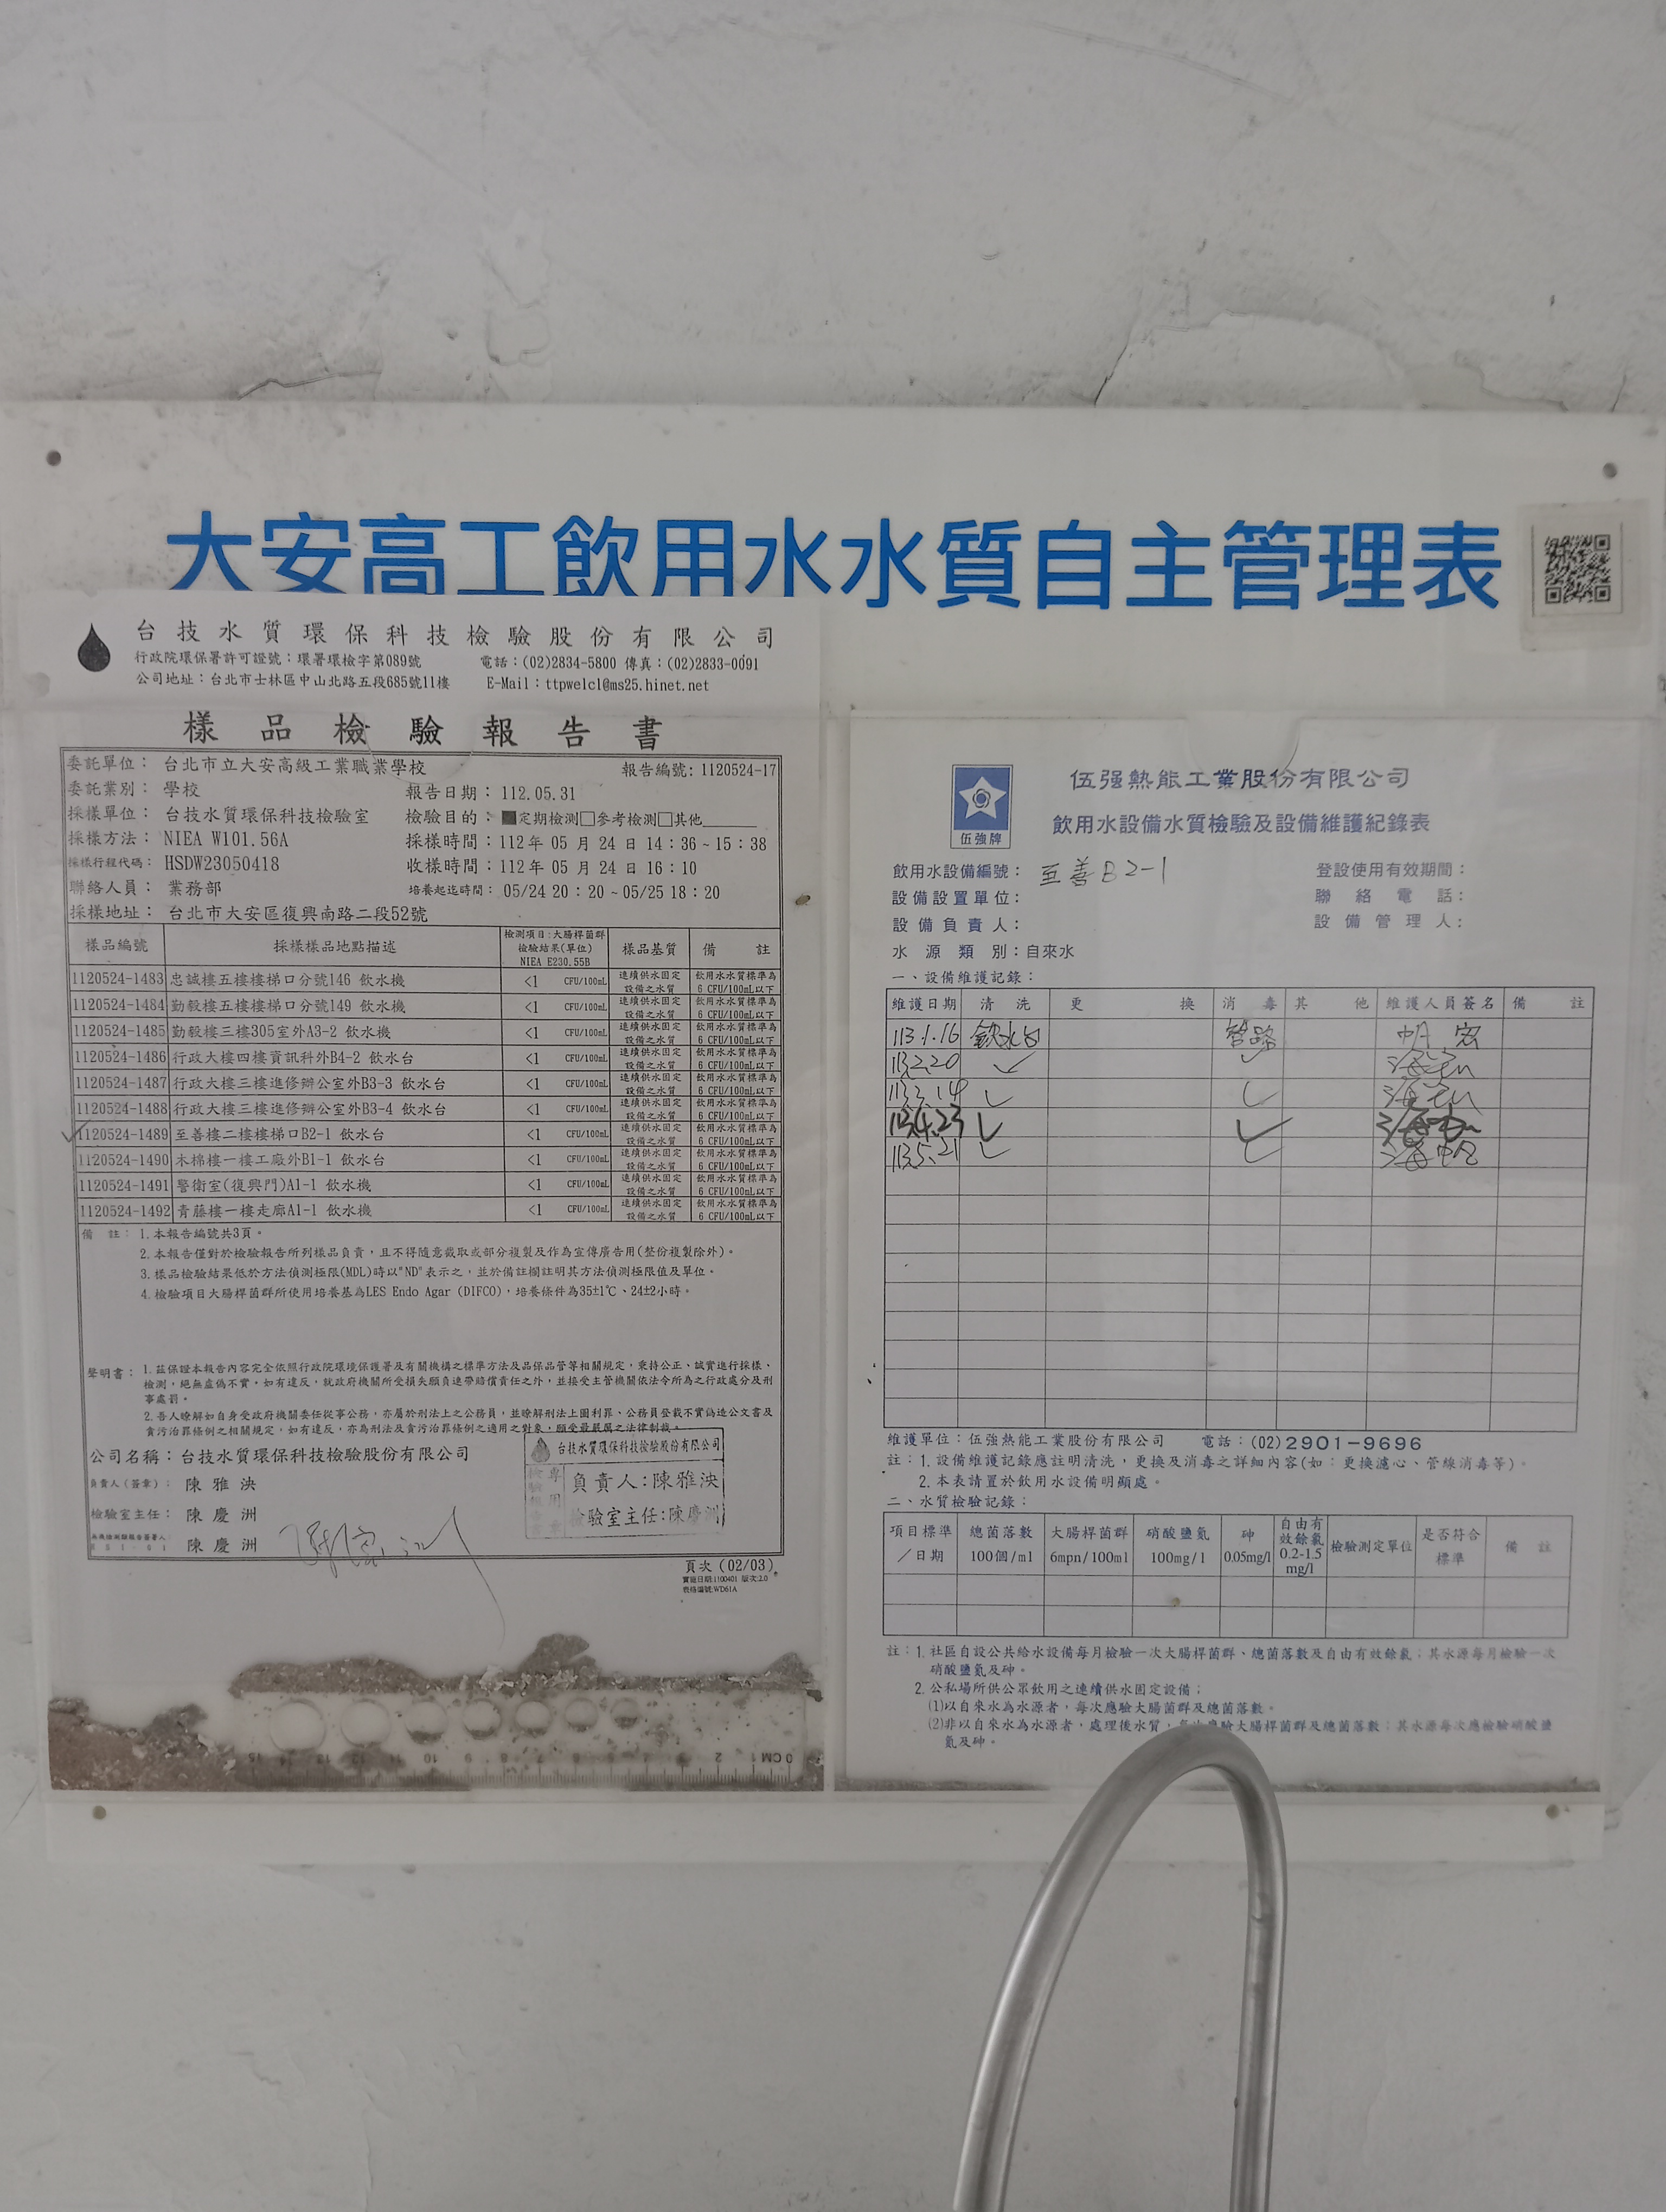 大安高工飲用水水質自主管理表
台技水質環保科技檢驗股份有限公司
行政院環保署許可證號：環署環檢字第089號 電話：(02)2834-5800 傳真：(02)2833-0091
公司地址：台北市士林區中山北路五段685號11樓 E-Mail：ttpwelcl@ms25.hinet.net
樣品檢驗報告書
委託單位： 台北市立大安高級工業職業學校 報告編號: 1120524-17
委託業別： 學校 報告日期： 112.05.31
採樣單位： 台技水質環保科技檢驗室 檢驗目的： ■定期檢測□參考檢測□其他
採樣方法： NIEA W101.56A 採樣時間：112 年 05 月 24 日 14：36 ~ 15：38
採樣行程代碼： HSDW23050418 收樣時間：112 年 05 月 24 日 16：10
聯絡人員： 業務部 培養起迄時間： 05/24 20：20 ~ 05/25 18：20
採樣地址： 台北市大安區復興南路二段52號
樣品編號 採樣樣品地點描述 檢測項目:大腸桿菌群 檢驗結果(單位) NIEA E230.55B 樣品基質 備註
1120524-1483 忠誠樓五樓樓梯口分號146 飲水機 <1 CFU/100mL 連續供水固定設備之水質 飲用水水質標準為6 CFU/100mL以下
1120524-1484 勤毅樓五樓樓梯口分號149 飲水機 <1 CFU/100mL 連續供水固定設備之水質 飲用水水質標準為6 CFU/100mL以下
1120524-1485 勤毅樓三樓305室外A3-2 飲水機 <1 CFU/100mL 連續供水固定設備之水質 飲用水水質標準為6 CFU/100mL以下
1120524-1486 行政大樓四樓資訊科外B4-2 飲水台 <1 CFU/100mL 連續供水固定設備之水質 飲用水水質標準為6 CFU/100mL以下
1120524-1487 行政大樓三樓進修辦公室外B3-3 飲水台 <1 CFU/100mL 連續供水固定設備之水質 飲用水水質標準為6 CFU/100mL以下
1120524-1488 行政大樓三樓進修辦公室外B3-4 飲水台 <1 CFU/100mL 連續供水固定設備之水質 飲用水水質標準為6 CFU/100mL以下
1120524-1489 至善樓二樓樓梯口B2-1 飲水台 <1 CFU/100mL 連續供水固定設備之水質 飲用水水質標準為6 CFU/100mL以下
1120524-1490 木棉樓一樓工廠外B1-1 飲水台 <1 CFU/100mL 連續供水固定設備之水質 飲用水水質標準為6 CFU/100mL以下
1120524-1491 警衛室(復興門)A1-1 飲水機 <1 CFU/100mL 連續供水固定設備之水質 飲用水水質標準為6 CFU/100mL以下
1120524-1492 青藤樓一樓走廊A1-1 飲水機 <1 CFU/100mL 連續供水固定設備之水質 飲用水水質標準為6 CFU/100mL以下
備註：1.本報告編號共3頁。
2.本報告僅對於檢驗報告所列樣品負責，且不得隨意截取或部分複製及作為宣傳廣告用(整份複製除外)。
3.樣品檢驗結果低於方法偵測極限(MDL)時以"ND"表示之，並於備註欄註明其方法偵測極限值及單位。
4.檢驗項目大腸桿菌群所使用培養基為LES Endo Agar (DIFCO)，培養條件為35±1℃、24±2小時。
聲明書：1.茲保證本報告內容完全依照行政院環境保護署及有關機構之標準方法及品保品管等相關規定，秉持公正、誠實進行採樣、
檢測，絕無虛偽不實。如有違反，就政府機關所受損失願負連帶賠償責任之外，並接受主管機關依法令所為之行政處分及刑
事處罰。
2.吾人瞭解如自身受政府機關委任從事公務，亦屬於刑法上之公務員，並瞭解刑法上圖利罪、公務員登載不實偽造公文書及
貪污治罪條例之相關規定，如有違反，亦為刑法及貪污治罪條例之適用之對象，願受最嚴厲之法律制裁。
公司名稱：台技水質環保科技檢驗股份有限公司
負責人(簽章)： 陳雅泱
檢驗室主任： 陳慶洲
陳慶洲
台技水質環保科技檢驗股份有限公司
負責人:陳雅泱
檢驗室主任:陳慶洲
頁次 (02/03)
實施日期:1100401 版次:2.0
表格編號:WD61A
15 14 13 12 11 10 9 8 7 6 5 4 3 2 1 0 CM
伍強牌
伍强熱能工業股份有限公司
飲用水設備水質檢驗及設備維護紀錄表
飲用水設備編號： 至善B2-1 登設使用有效期間：
設備設置單位： 聯絡電話：
設備負責人： 設備管理人：
水源類別：自來水
一、設備維護記錄：
維護日期 清洗 更換 消毒 其他 維護人員簽名 備註
113.1.16 飲水台 管路
113.2.20 ✓ ✓
113.3.14 ✓ ✓
113.4.23 ✓ ✓
113.5.21 ✓ ✓
維護單位：伍強熱能工業股份有限公司 電話：(02)2901-9696
註：1.設備維護記錄應註明清洗，更換及消毒之詳細內容(如：更換濾心、管線消毒等)。
2.本表請置於飲用水設備明顯處。
二、水質檢驗記錄：
項目標準／日期 總菌落數 100個/ml 大腸桿菌群 6mpn/100ml 硝酸鹽氮 100mg/l 砷 0.05mg/l 自由有效餘氯 0.2-1.5 mg/l 檢驗測定單位 是否符合標準 備註
註：1.社區自設公共給水設備每月檢驗一次大腸桿菌群、總菌落數及自由有效餘氯；其水源每月檢驗一次
硝酸鹽氮及砷。
2.公私場所供公眾飲用之連續供水固定設備；
(1)以自來水為水源者，每次應驗大腸菌群及總菌落數。
(2)非以自來水為水源者，處理後水質，每次應驗大腸桿菌群及總菌落數；其水源每次應檢驗硝酸鹽
氮及砷。